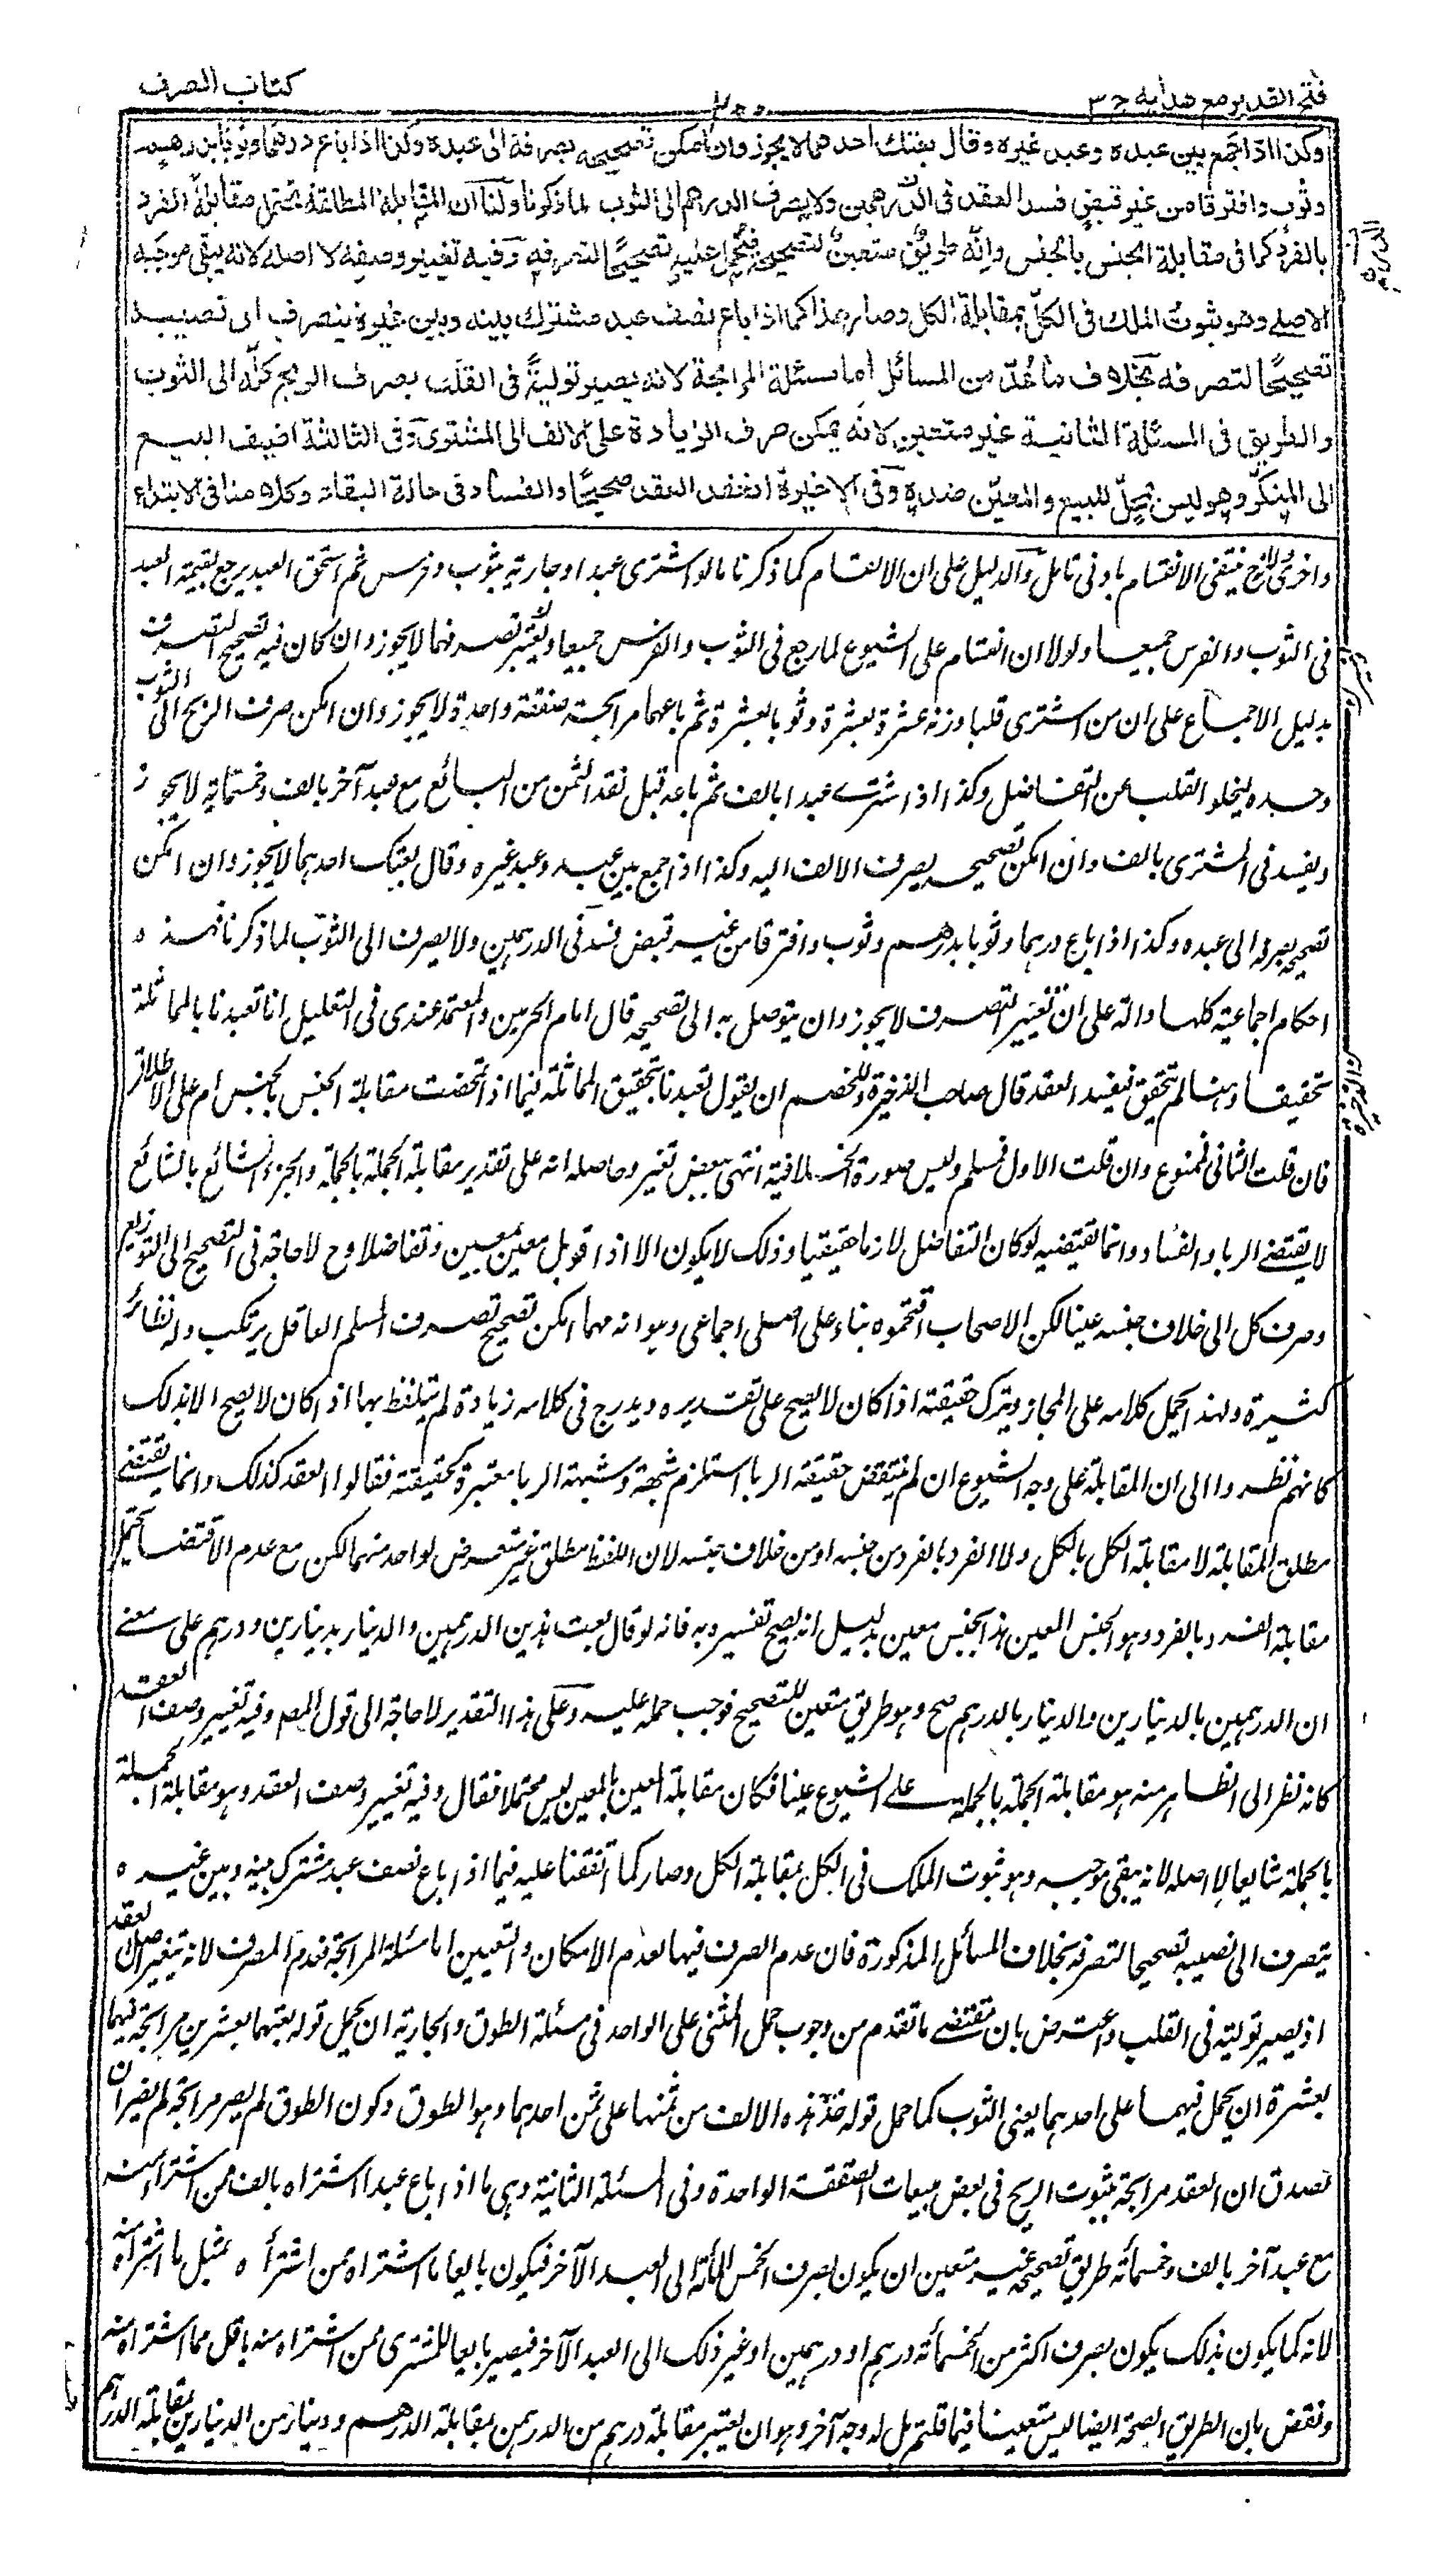 فتح القدير مع هدايه ج ٣
كتاب الصرف
وكذا اذا جمع بين عبده وعبد غيره وقال بعتك احدهما لا يجوز وان امكن تصحيحه بصرفه الى عبده وكذا اذا باع درهما وثوبا بدرهم
وثوب وافترقا من غير قبض فسد العقد فى الدرهمين ولا يصرف الدرهم الى الثوب لما ذكرنا ولنا ان المقابلة المطلقة تحتمل مقابلة الفرد
بالفرد كما فى مقابلة الجنس بالجنس وانه طريق متعين لتصحيحه فتحمل عليه تصحيحا لتصرفه وفيه تغيير وصفه لا اصله لانه يبقى موجبه
الاصلي وهو ثبوت الملك فى الكل بمقابلة الكل وصار هذا كما اذا باع نصف عبد مشترك بينه وبين غيره ينصرف الى نصيبه
تصحيحا لتصرفه بخلاف ما عد من المسائل اما مسئلة المرابحة لانه يصير تولية فى القلب بصرف الربح كله الى الثوب
والطريق فى المسئلة الثانية غير متعين لانه يمكن صرف الزيادة على الالف الى المشترى وفى الثالثة اضيف البيع
الى المنكر وهو ليس بمحل للبيع والمعين ضده وفى الاخيرة انعقد العقد صحيحا والفساد فى حالة البقاء وكلامنا فى الابتداء
منتفى الانقسام بادنى تامل والدليل على ان الانقسام كما ذكرنا ما لو اشترى عبدا وجارية بثوب وفرس ثم استحق العبد يرجع بقيمة العبد
فى الثوب والفرس جميعا ولولا ان انقسام على الشيوع لما رجع فى الثوب والفرس جميعا وتغيير تصرفهما لا يجوز وان كان فيه تصحيح التصرف
بدليل الاجماع على ان من اشترى قلبا وزنه عشرة بعشرة وثوبا بعشرة ثم باعهما مرابحة صفقة واحدة لا يجوز وان امكن صرف الربح الى الثوب
وحده ليخلو القلب عن التفاضل وكذا اذا اشترى عبدا بالف ثم باعه قبل نقد الثمن من البائع مع عبد آخر بالف وخمسمائة لا يجوز
ويفسد فى المشترى بالف وان امكن تصحيحه بصرف الالف اليه وكذا اذا جمع بين عبده وعبد غيره وقال بعتك احدهما لا يجوز وان امكن
تصحيحه بصرفه الى عبده وكذا اذا باع درهما وثوبا بدرهم وثوب وافترقا من غير قبض فسد فى الدرهمين ولا يصرف الى الثوب لما ذكرنا فهذه
احكام اجماعية كلها دالة على ان تغيير التصرف لا يجوز وان يتوصل به الى تصحيحه قال امام الحرمين والمعتمد عندى فى التعليل انا تعبدنا بالمماثلة
تحقيقا وههنا لم تتحقق فيفسد العقد قال صاحب الذخيرة وللخصم ان يقول تعبدنا بتحقيق المماثلة فيما اذا تمحضت مقابلة الجنس بالجنس ام على الاطلاق
فان قلت الثانى فممنوع وان قلت الاول فمسلم وليس صورة الخلافية انتهى ببعض تغيير وحاصله انه على تقدير مقابلة الجملة بالجملة والجزء الشائع بالشائع
لا يقتضى الربا والفساد وانما تقتضيه لو كان التفاضل لازما حقيقيا وذلك لا يكون الا اذا قوبل معين بمعين وتفاضلا وح لا حاجة فى التصحيح الى التوزيع
وصرف كل الى خلاف جنسه عينا لكن الاصحاب اقتحموه بناء على اصل اجماعى وهو انه مهما امكن تصحيح تصرف المسلم العاقل يرتكب وله نظائر
كثيرة ولهذا يحمل كلامه على المجاز ويترك حقيقته اذا كان لا يصح على تقديره ويدرج فى كلامه زيادة لم يتلفظ بها اذا كان لا يصح الا بذلك
كانهم نظروا الى ان المقابلة على وجه الشيوع ان لم يقتض حقيقة الربا استلزم شبهة وشبهة الربا معتبرة كحقيقته فقالوا العقد كذلك وانما يقتضى
مطلق المقابلة لا مقابلة الكل بالكل ولا الفرد بالفرد من جنسه او من خلاف جنسه لان اللفظ مطلق غير متعرض لواحد منهما لكن مع عدم الاقتضاء يحتمل
مقابلة الفرد بالفرد وهو الجنس المعين بذا الجنس معين بدليل انه يصح تفسيره به فانه لو قال بعت هذين الدرهمين والدينار بدينارين ودرهم على معنى
ان الدرهمين بالدينارين والدينار بالدرهم صح وهو طريق متعين للتصحيح فوجب حمله عليه وعلى هذا التقدير لا حاجة الى قول المصـ وفيه تغيير وصف العقد
كانه نظر الى الظاهر منه هو مقابلة الجملة بالجملة على الشيوع عينا فكان مقابلة المعين بالمعين ليس محتملا فقال وفيه تغيير وصف العقد وهو مقابلة الجملة
بالجملة شايعا لا اصله لانه يبقى موجبه وهو ثبوت الملك فى الكل بمقابلة الكل وصار كما اتفقنا عليه فيما اذا باع نصف عبد مشترك بينه وبين غيره
ينصرف الى نصيبه تصحيحا لتصرفه بخلاف المسائل المذكورة فان عدم الصرف فيها لعدم الامكان والتعيين اما مسئلة المرابحة فعدم الصرف لانه يتغير اصل العقد
اذ يصير تولية فى القلب واعترض بان مقتضى ما تقدم من وجوب حمل المثنى على الواحد فى مسئلة الطوق والجارية ان يحمل قوله بعتهما بعشرين مرابحة فيهما
بعشرة ان يحمل فيهما على احدهما يعنى الثوب كما حمل قوله خذ هذه الالف من ثمنها على ثمن احدهما وهو الطوق وكون الطوق لم يصر مرابحة لم يضر ان
يصدق ان العقد مرابحة بثبوت الربح فى بعض مبيعات الصفقة الواحدة وفى المسئلة الثانية وهى ما اذا باع عبدا اشتراه بالف ممن اشتراه منه
مع عبد آخر بالف وخمسمائة طريق تصحيحه غير متعين ان يكون بصرف الخمس المائة الى العبد الآخر فيكون بايعا ما اشتراه ممن اشتراه بمثل ما اشتراه منه
لانه كما يكون بذلك يكون بصرف اكثر من الخمسمائة درهم او درهمين او غير ذلك الى العبد الآخر فيصير بايعا للمشترى ممن اشتراه منه باقل مما اشتراه منه
ونقض بان الطريق الصحة ايضا ليس متعينا فيما قلتم بل له وجه آخر وهو ان يعتبر مقابلة درهم من الدرهمين بمقابلة الدرهم ودينار من الدينارين بمقابلة الدرهم